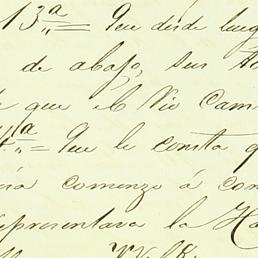 13ª = Que desde lueg
de abajo, sus
que el Rio Cam
4ª = Que le consta q
comenzo á con
representava la Ha